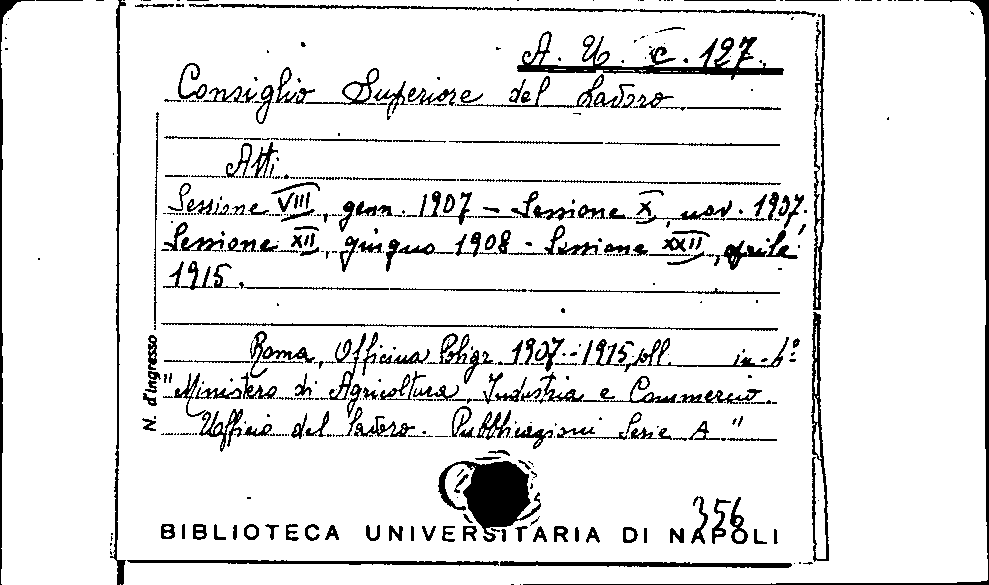 A. U. C. 127.
Consiglio Superiore del Lavoro
Atti.
Sessione VIII, genn. 1907 - Sessione X, nov. 1907.
Sessione XII, giugno 1908 - Sessione XXII, aprile
1915.
Roma, Officina Poligr. 1907-1915, voll. in-4º
"Ministero di Agricoltura, Industria e Commercio.
Ufficio del Lavoro. Pubblicazioni Serie A"
N. d'Ingresso
356
BIBLIOTECA UNIVERSITARIA DI NAPOLI